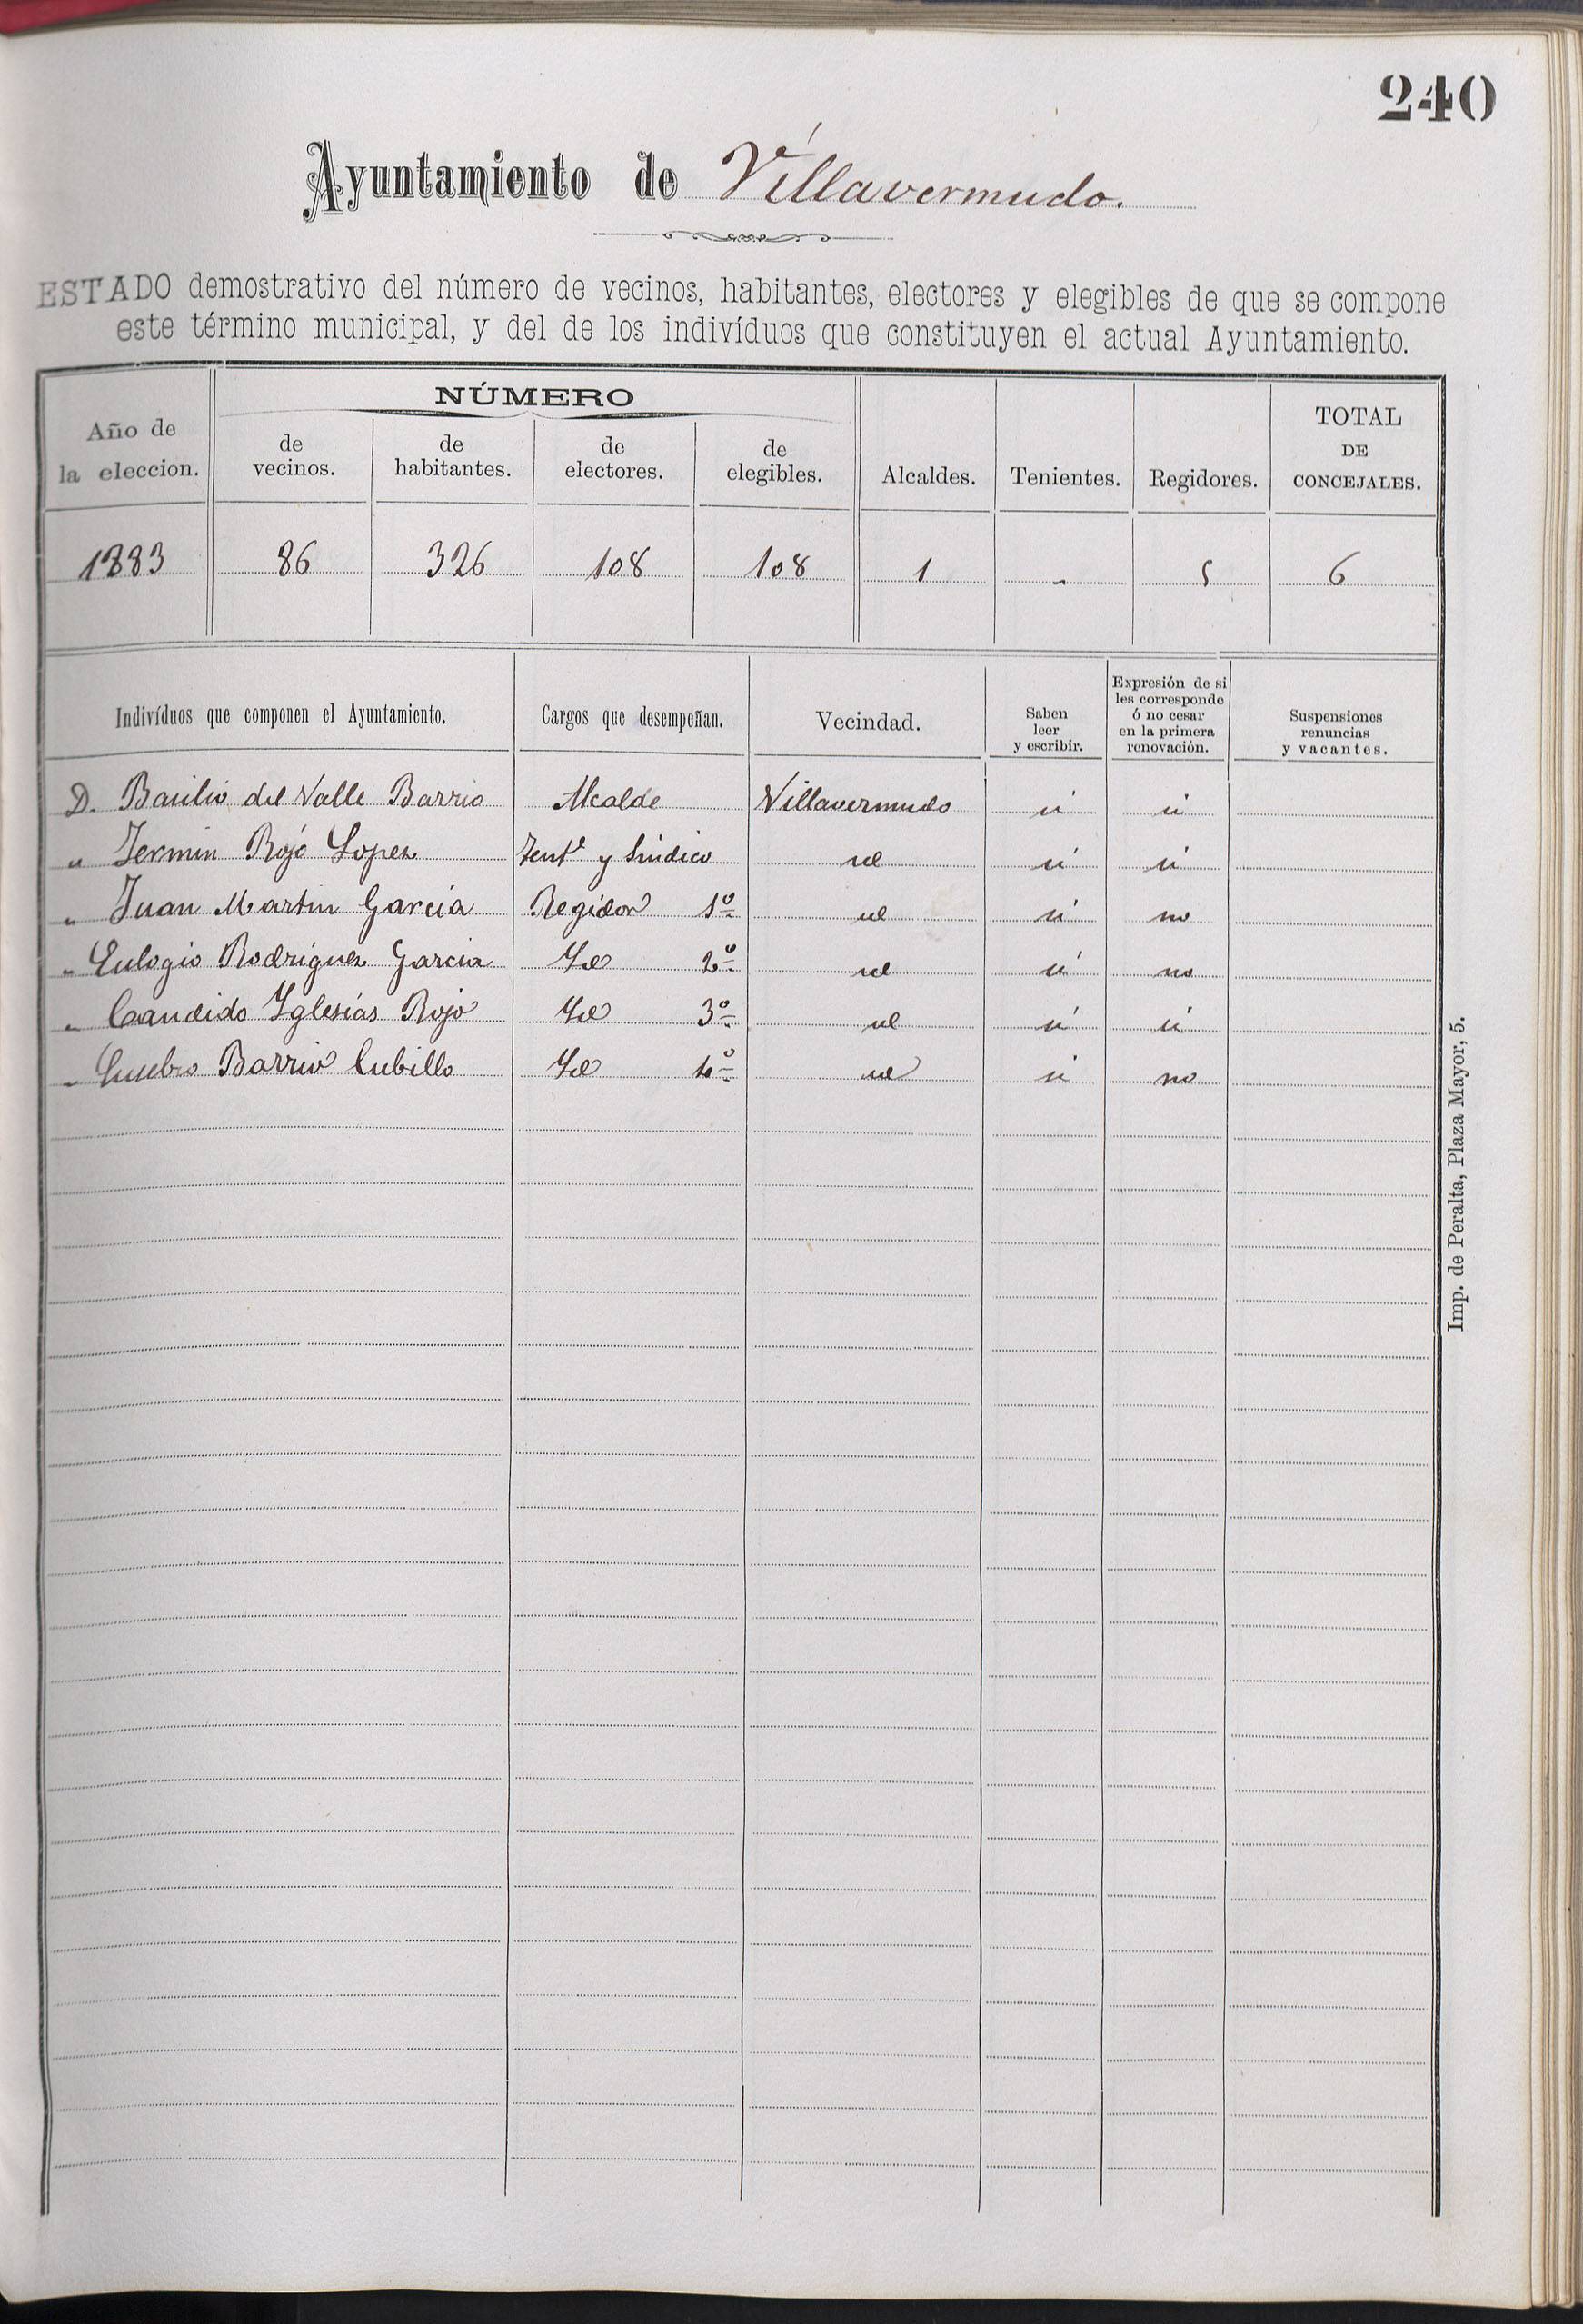 240
Ayuntamiento de Villavermudo.
ESTADO demostrativo del número de vecinos, habitantes, electores y elegibles de que se compone
este término municipal, y del de los indivíduos que constituyen el actual Ayuntamiento.
Año de la eleccion. NÚMERO de vecinos. de habitantes. de electores. de elegibles. Alcaldes. Tenientes. Regidores. TOTAL DE CONCEJALES.
1883 86 326 108 108 1 " 5 6
Indivíduos que componen el Ayuntamiento. Cargos que desempeñan. Vecindad. Saben leer y escribir. Expresión de si les corresponde ó no cesar en la primera renovación. Suspensiones renuncias y vacantes.
D. Basilio del Valle Barrio Alcalde Villavermudo si si
" Fermin Rojo Lopez Tente y Sindico id si si
" Juan Martin Garcia Regidor 1º id si no
" Eulogio Rodriguez Garcia Id 2º id si no
" Candido Yglesias Rojo Id 3º id si si
" Eusebio Barrio Cubillo Id 4º id si no
Imp. de Peralta, Plaza Mayor, 5.